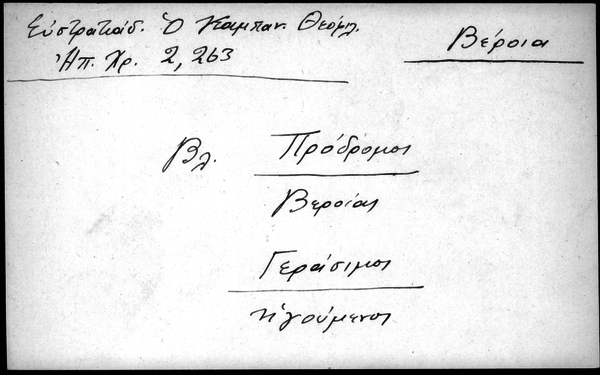 Εὐστρατιάδ. Ὁ Καμπαν. Θεόφιλ.
Βέροια
Ἠπ. Χρ. 2, 263
Βλ. Πρόδρομος
Βεροίας
Γεράσιμος
ἡγούμενος